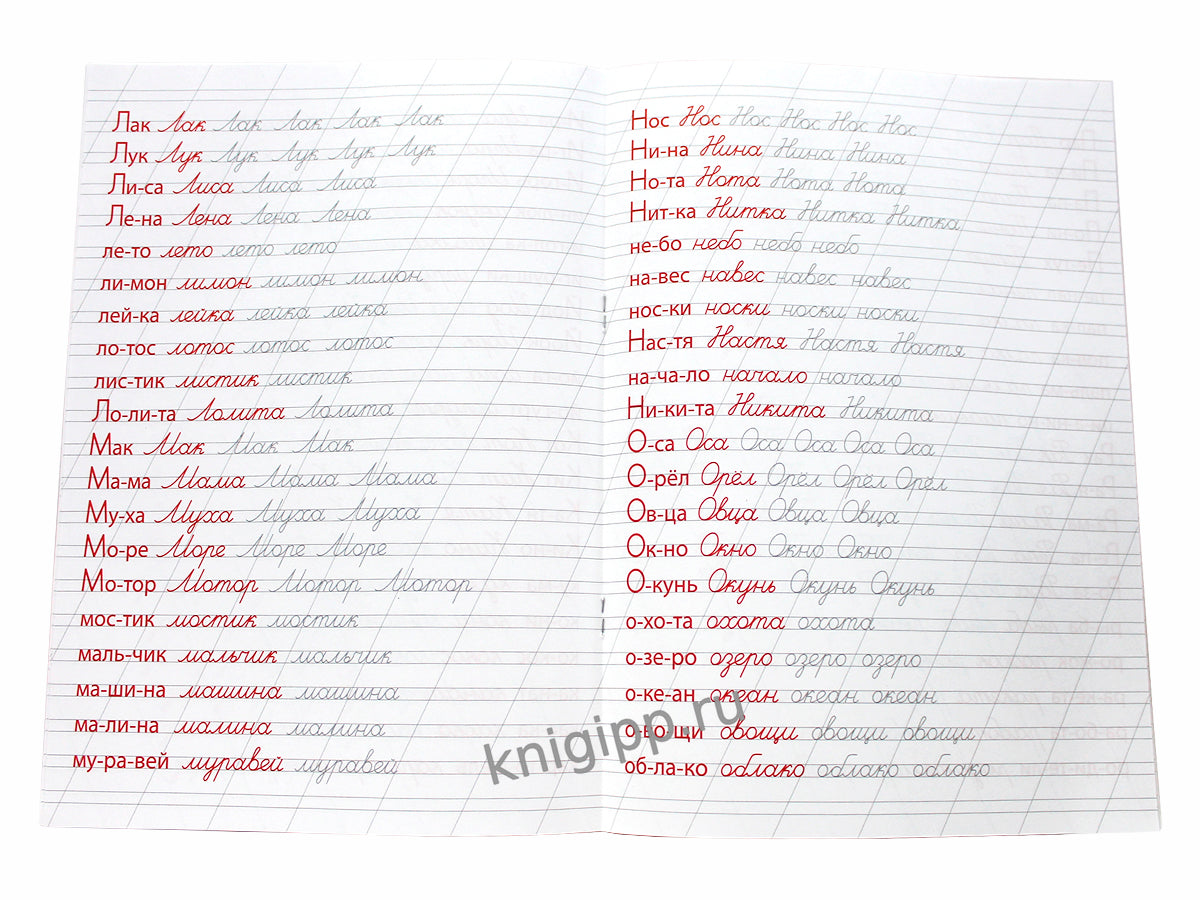 Лак Лак Лак Лак Лак Лак
Лук Лук Лук Лук Лук Лук
Ли-са Лиса Лиса Лиса
Ле-на Лена Лена Лена
ле-то лето лето лето
ли-мон лимон лимон лимон
лей-ка лейка лейка лейка
ло-тос лотос лотос лотос
лис-тик листик листик
Ло-ли-та Лолита Лолита
Мак Мак Мак Мак
Ма-ма Мама Мама Мама
Му-ха Муха Муха Муха
Мо-ре Море Море Море
Мо-тор Мотор Мотор Мотор
мос-тик мостик мостик
маль-чик мальчик мальчик
ма-ши-на машина машина
ма-ли-на малина малина
му-ра-вей муравей муравей
Нос Нос Нос Нос Нос Нос
Ни-на Нина Нина Нина
Но-та Нота Нота Нота
Нит-ка Нитка Нитка Нитка
не-бо небо небо небо
на-вес навес навес навес
нос-ки носки носки носки
Нас-тя Настя Настя Настя
на-ча-ло начало начало
Ни-ки-та Никита Никита
О-са Оса Оса Оса Оса Оса
О-рёл Орёл Орёл Орёл Орёл
Ов-ца Овца Овца Овца
Ок-но Окно Окно Окно
О-кунь Окунь Окунь Окунь
о-хо-та охота охота
о-зе-ро озеро озеро озеро
о-ке-ан океан океан океан
о-во-щи овощи овощи овощи
об-ла-ко облако облако облако
knigipp.ru